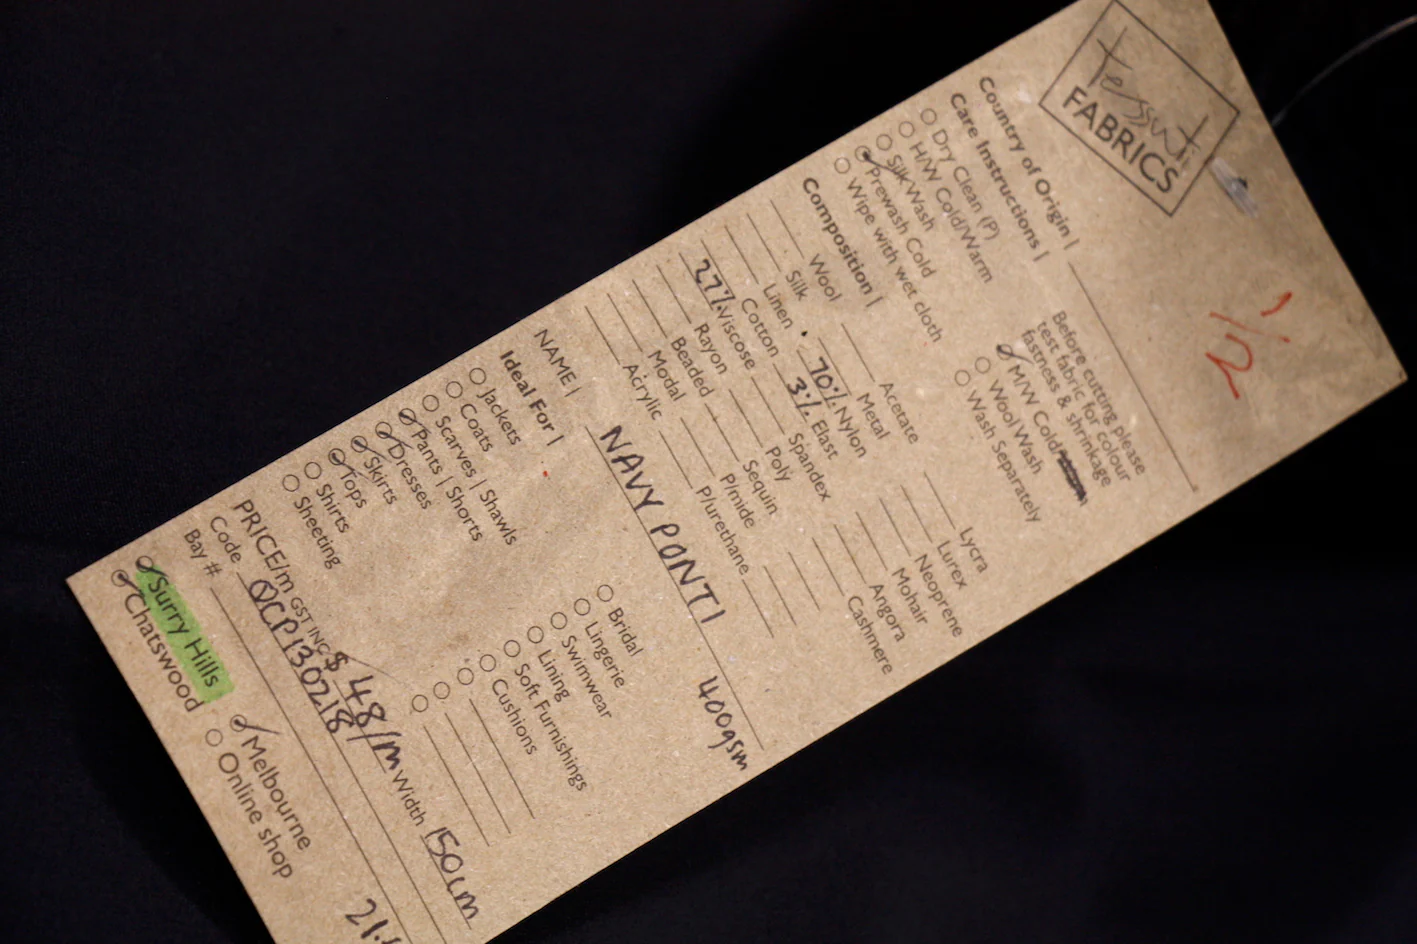 tessuti
FABRICS
1/2
Country of Origin |
Care Instructions |
Dry Clean (P)
H/W Cold/Warm
Silk Wash
Prewash Cold
Wipe with wet cloth
Before cutting please
test fabric for colour
fastness & shrinkage
M/W Cold/
Wool Wash
Wash Separately
Composition |
Wool
Silk
Linen
Cotton
27% Viscose
Rayon
Beaded
Modal
Acrylic
Acetate
Metal
70% Nylon
3% Elast
Spandex
Poly
Sequin
P/mide
P/urethane
Lycra
Lurex
Neoprene
Mohair
Angora
Cashmere
NAME | NAVY PONTI 400gsm
Ideal For |
Jackets
Coats
Scarves | Shawls
Pants | Shorts
Dresses
Skirts
Tops
Shirts
Sheeting
Bridal
Lingerie
Swimwear
Lining
Soft Furnishings
Cushions
PRICE/m GST INC $ 48/m Width 150cm
Code QCP130218
Bay #
Surry Hills
Chatswood
Melbourne
Online shop